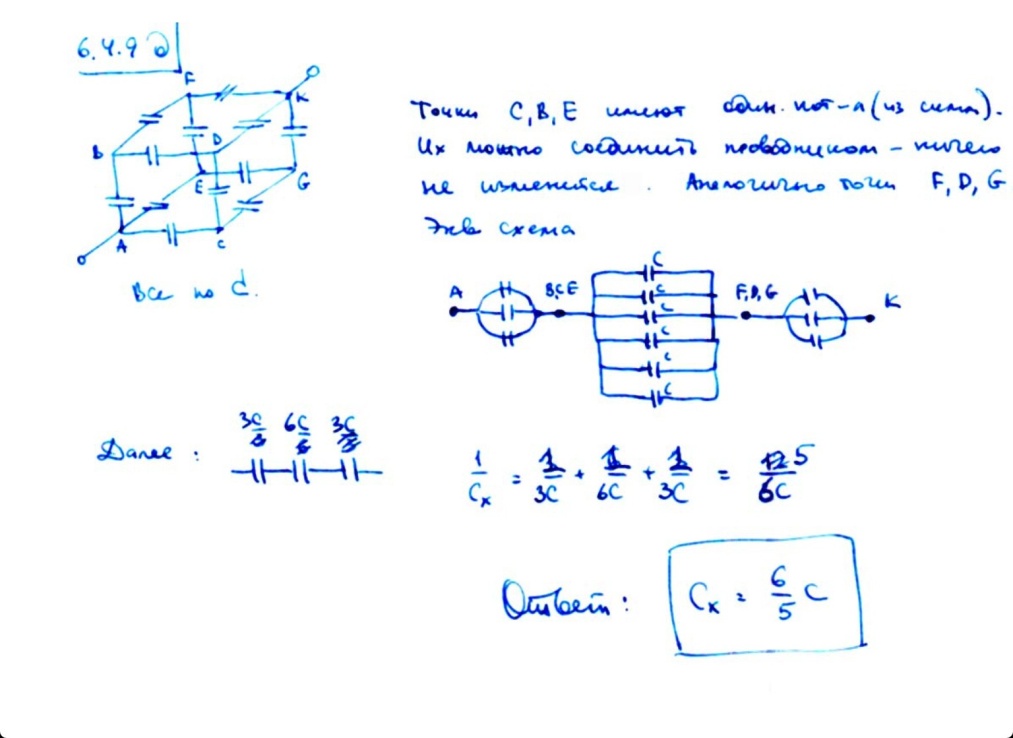 6.4.9 д
F
K
B
D
E
G
A
C
Все по C.
Точки C, B, E имеют один. пот-л (из симм).
Их можно соединить проводником – ничего
не изменится. Аналогично точки F, D, G
Экв схема
A
B,C,E
C
C
C
C
C
C
F,D,G
K
Далее :
3C 6C 3C
1/Cx = 1/3C + 1/6C + 1/3C = 5/6C
Ответ: Cx = 6/5 C